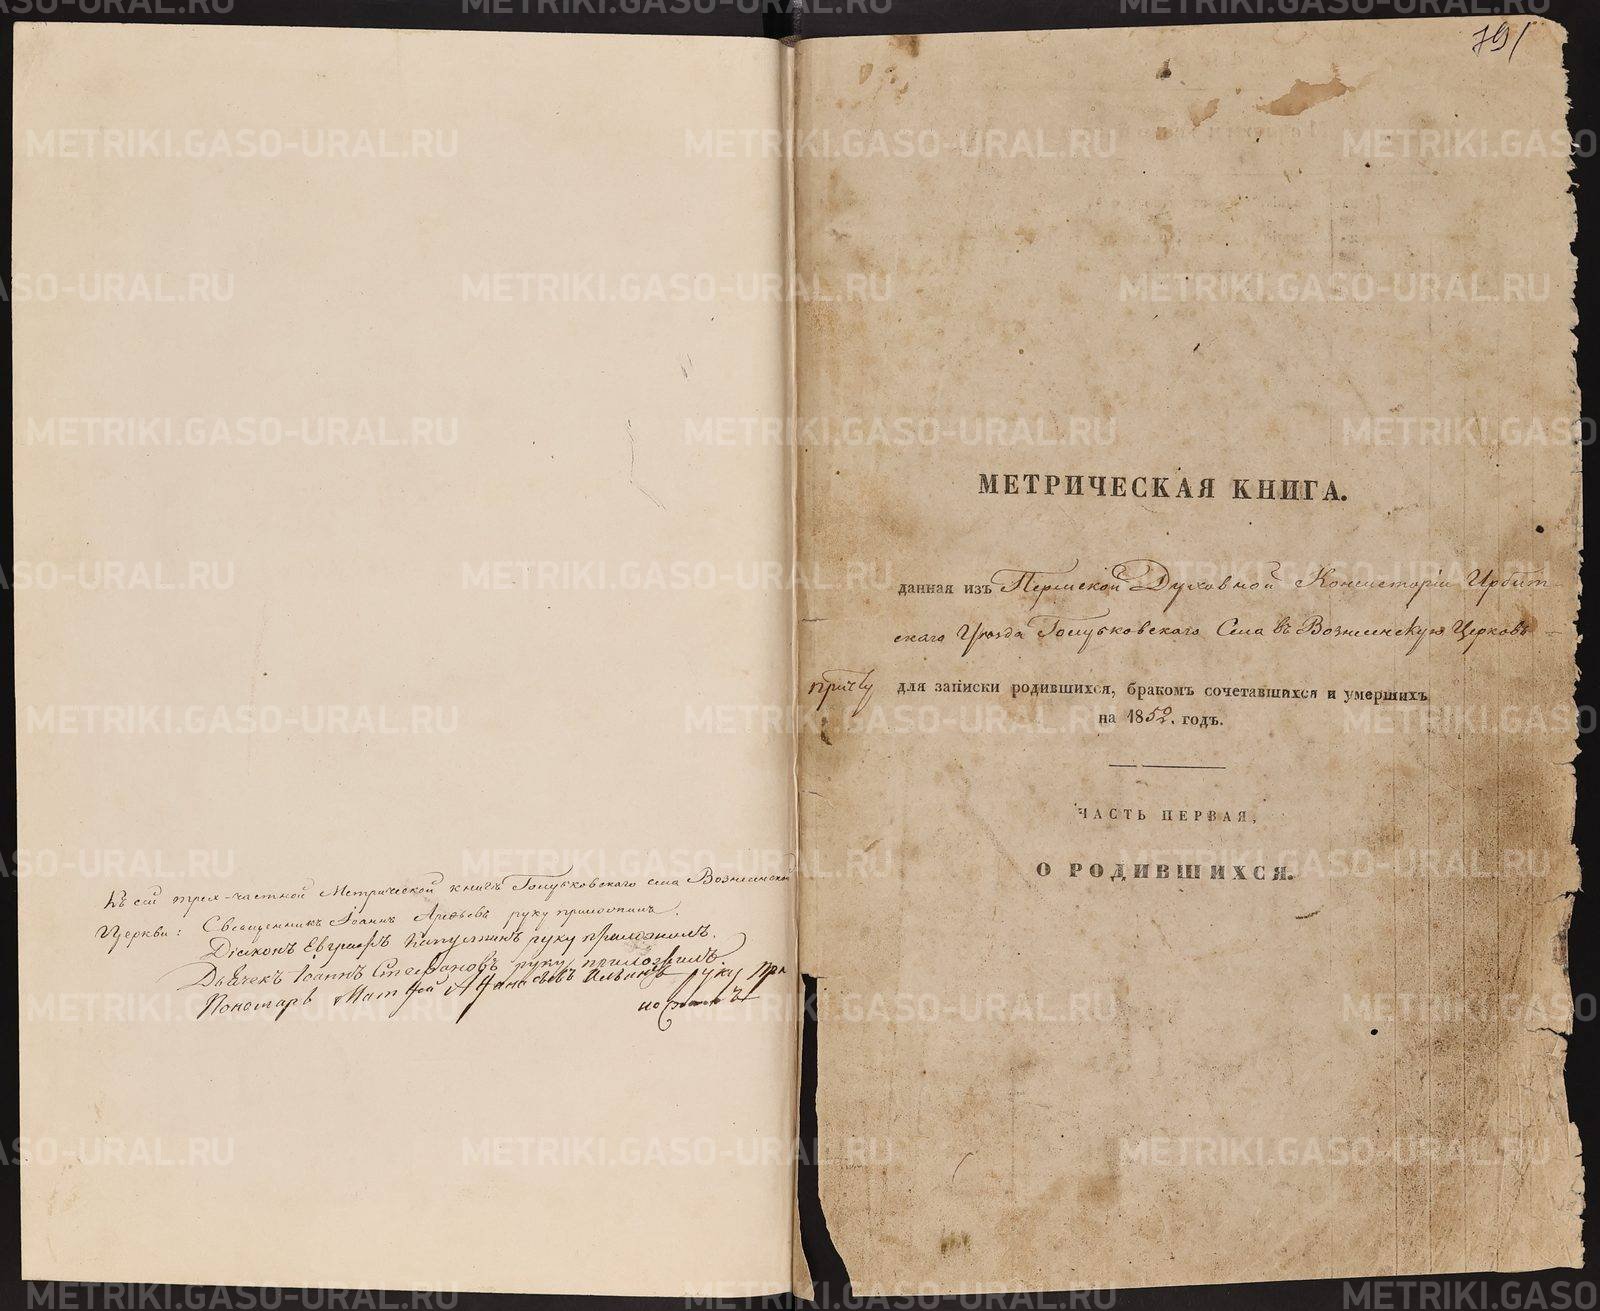 Къ сей трех-частной Метрической книгѣ Голубковскаго села Вознесенской
Церкви: Священникъ Іоаннъ руку приложилъ.
Діаконъ Евграфъ руку приложилъ.
Дьячекъ Іоаннъ Стефановъ руку приложилъ.
Пономарь Матфей Ильинъ руку при
ложилъ
791
МЕТРИЧЕСКАЯ КНИГА.
данная изъ Пермской Духовной Консисторіи Ирбит-
скаго Уѣзда Голубковскаго Села въ Вознесенскую Церковь
причту для записки родившихся, бракомъ сочетавшихся и умершихъ
на 1852. годъ.
ЧАСТЬ ПЕРВАЯ,
О РОДИВШИХСЯ.
METRIKI.GASO-URAL.RU